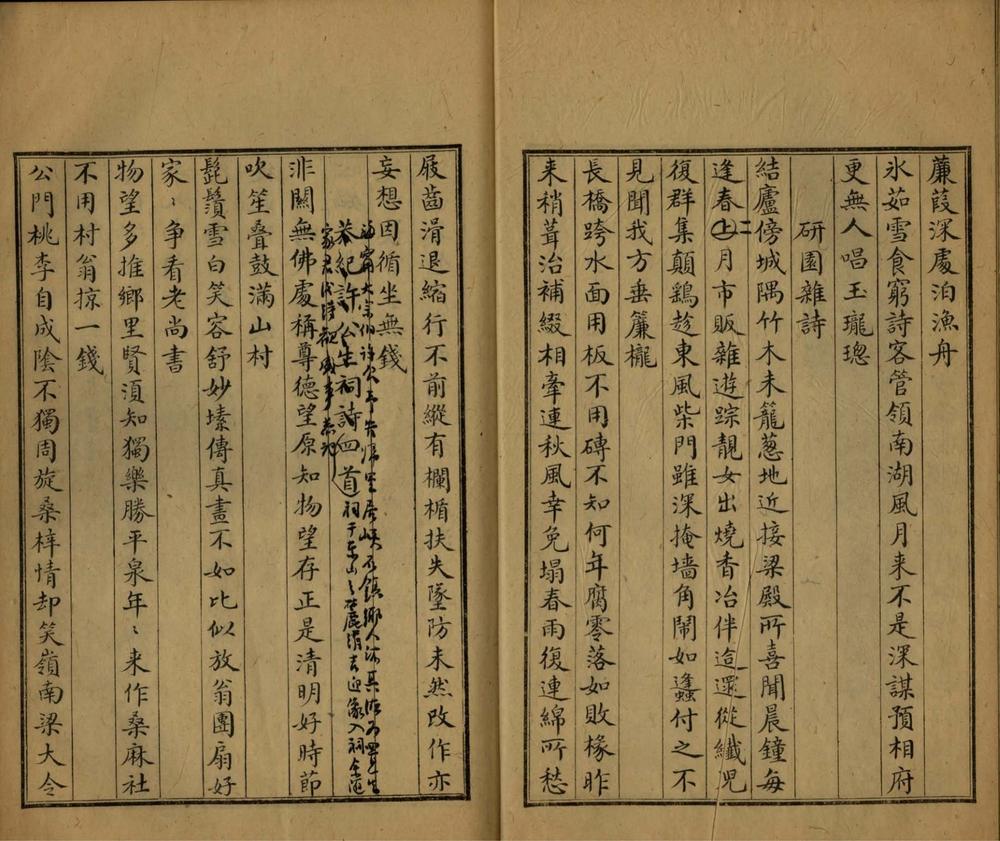 蒹葭深處泊漁舟
氷茹雪食窮詩客管領南湖風月来不是深謀預相府
更無人唱玉瓏璁
研園雜詩
結廬傍城隅竹木未籠蔥地近接梁殿所喜聞晨鐘每
逢春二上月市販雜遊踪靚女出燒香冶伴迨還從纖児
復群集顛鶏趁東風柴門雖深掩墻角鬧如蠭付之不
見聞我方垂簾櫳
長橋跨水面用板不用磚不知何年腐零落如敗椽昨
来稍葺治補綴相牽連秋風幸免塌春雨復連綿所愁
屐齒滑退縮行不前縱有欄楯扶失墜防未然改作亦
妄想因循坐無錢
恭紀許公生祠詩四首
非關無佛處稱尊德望原知物望存正是清明好時節
吹笙疊鼓滿山村
髭鬚雪白笑容舒妙塐傳真畫不如比似放翁團扇好
家〻争看老尚書
物望多推鄉里賢須知獨樂勝平泉年〻来作桑麻社
不用村翁掠一錢
公門桃李自成陰不獨周旋桑梓情却笑嶺南梁大令